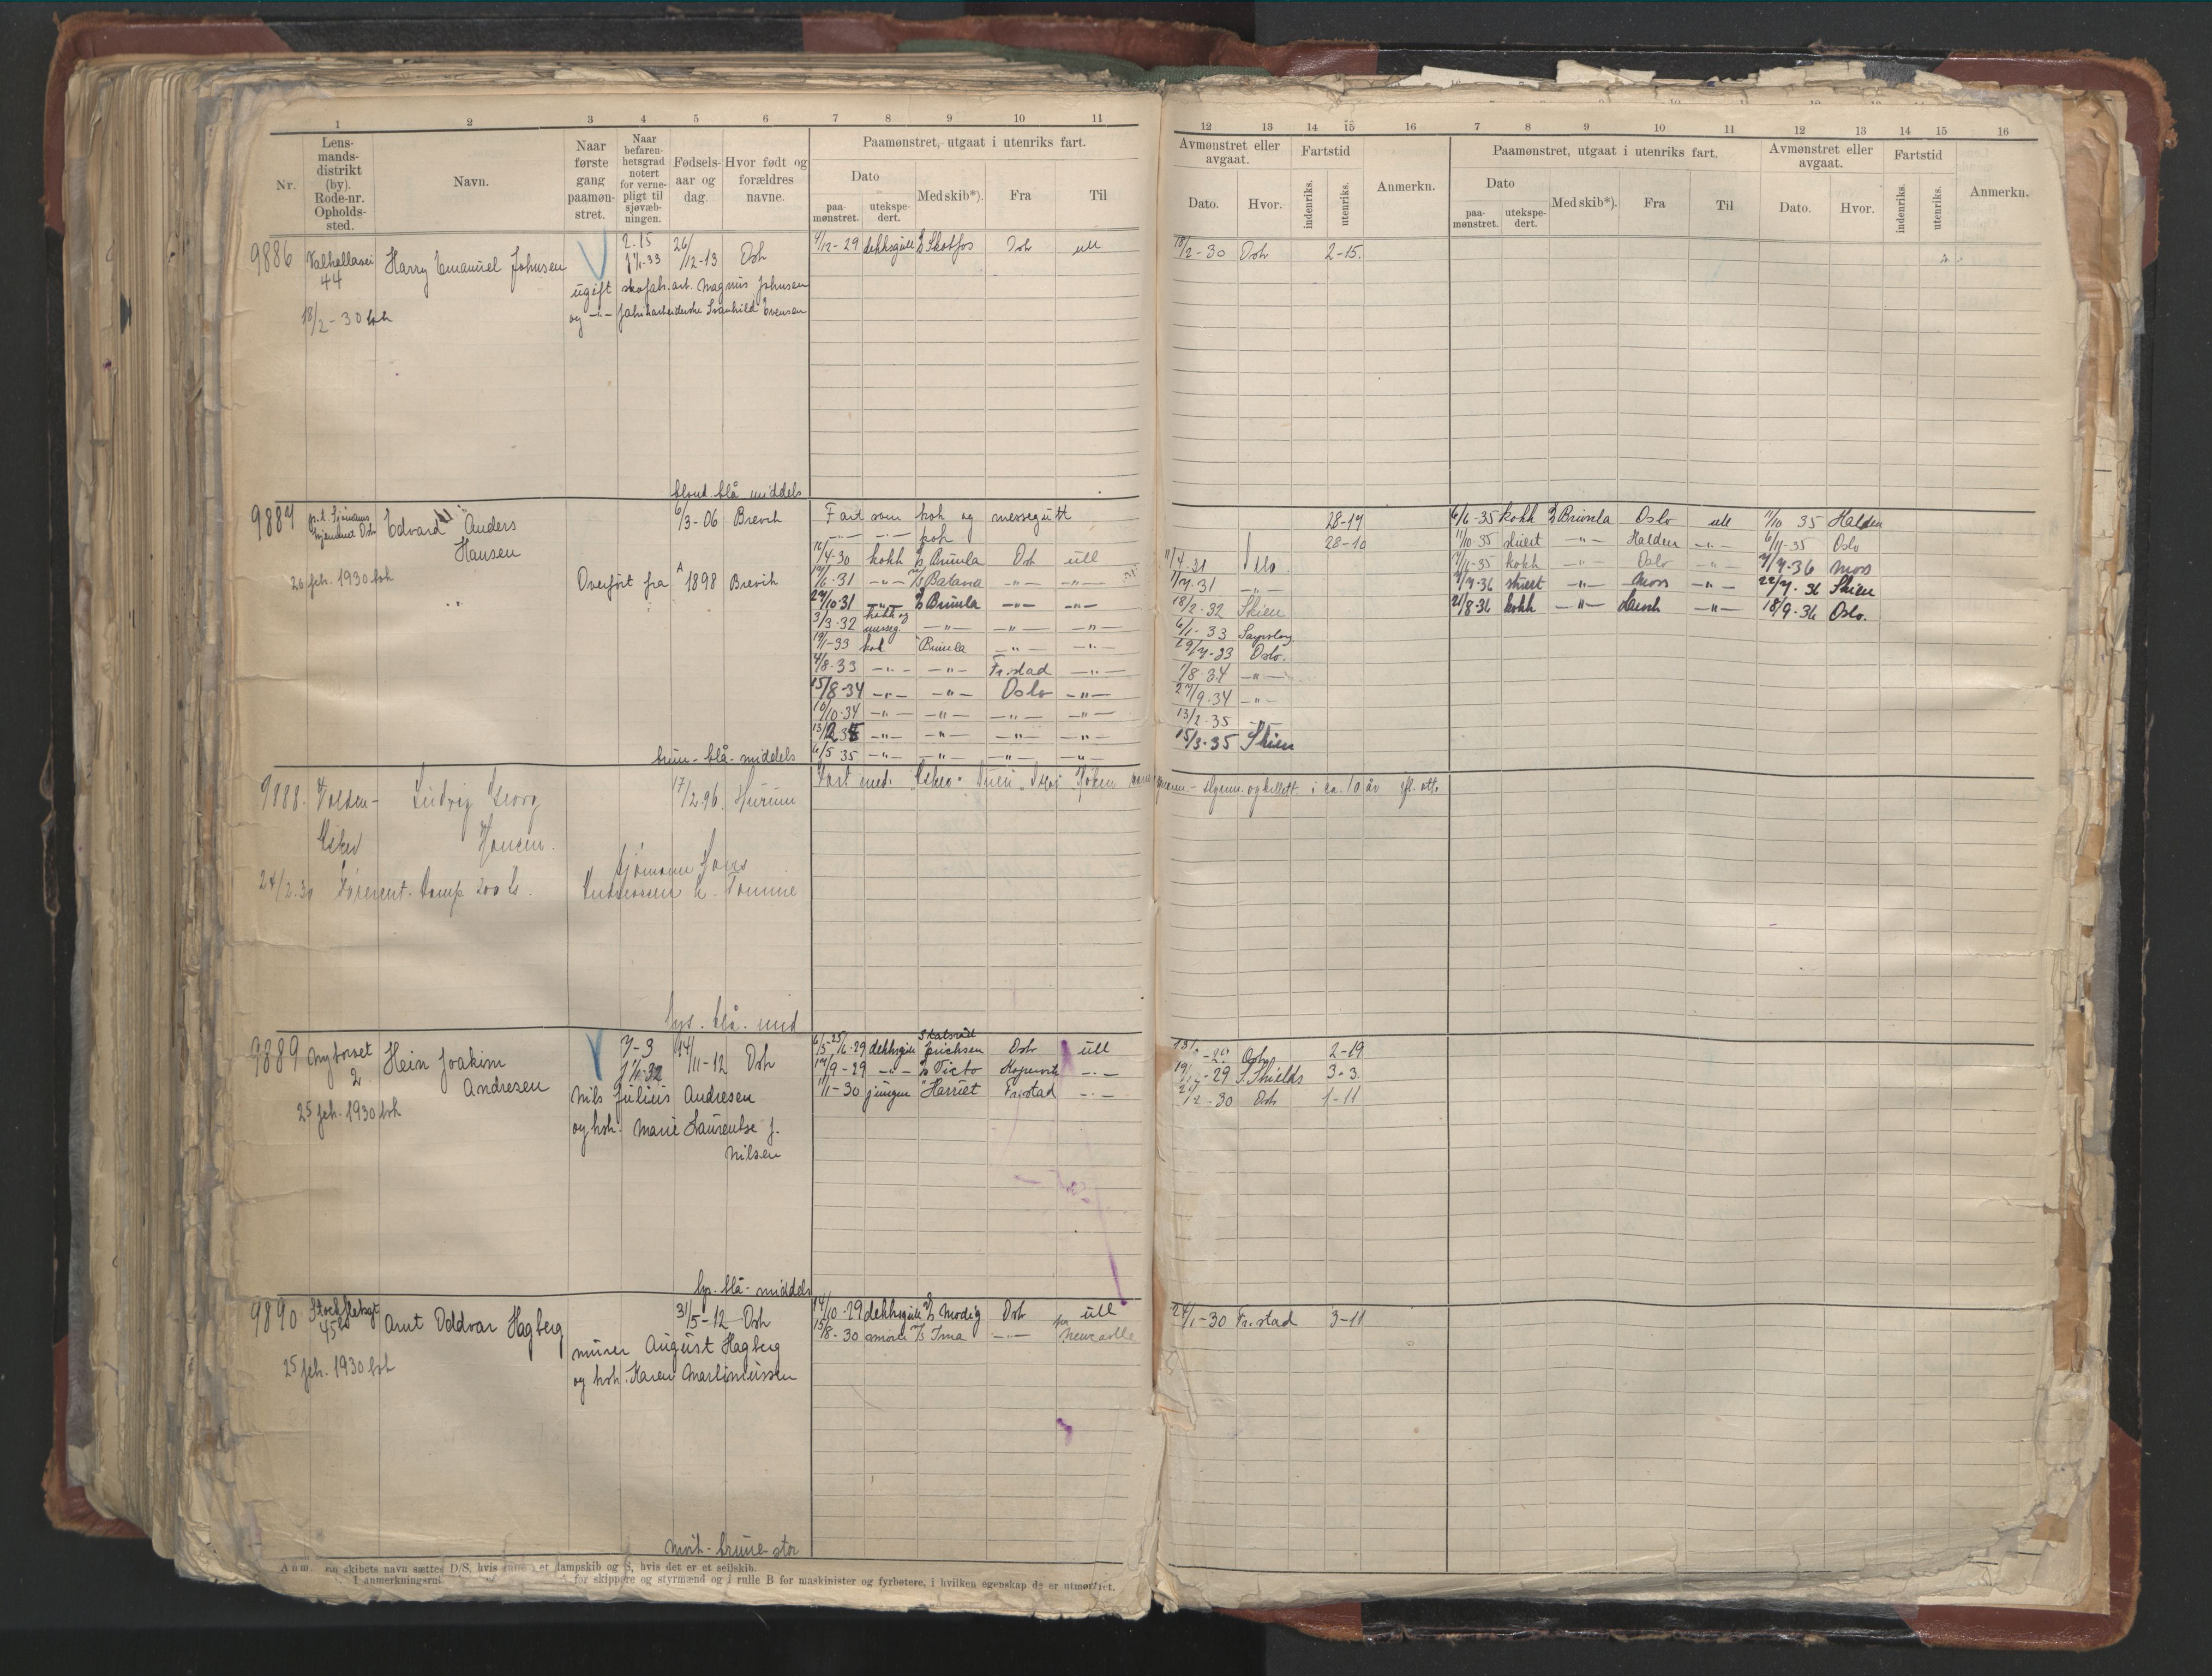 1 2 3 4 5 6 7 8 9 10 11
Nr. Lensmandsdistrikt (by). Rode-nr. Opholdssted. Navn. Naar første gang paamønstret. Naar befarenhetsgrad notert for vernepligt til sjøvæbningen. Fødselsaar og dag. Hvor født og forældres navne.
Paamønstret, utgaat i utenriks fart.
Dato Med skib*). Fra Til
paamønstret. utekspedert.
12 13 14 15 16 7 8 9 10 11 12 13 14 15 16
Avmønstret eller avgaat. Fartstid Anmerkn. Paamønstret, utgaat i utenriks fart. Avmønstret eller avgaat. Fartstid Anmerkn.
Dato. Hvor. indenriks. utenriks. Dato paamønstret. utekspedert. Med skib*). Fra Til Dato. Hvor. indenriks. utenriks.
9886 44 Harry Emanuel Johnsen 2-15 26/12-13 Osh 4/12-29 dekksgutt Skotfos Osh utl 18/2-30 Osh 2-15.
ugift skofab.arb. Magnus Johnsen
og -"- fabrikarbeiderske Svanhild Evensen
18/2-30 bok
blond. blå middels
9887 Edvard Anders Hansen 6/3-06 Brevik Fart som kok og messegutt 28-17
-"- -"- kok 28-10
20 feb. 1930 bok
Overført fra A 1898 Brevik
16/4-30 kokk Brumla Osh utl 11/4.31 Oslo
19/6-31 -"- Batavia -"- -"- 7/7.31 -"-
29/10-31 -"- Brumla -"- -"- 18/2-32 Skien
3/3-32 kokk og messeg. -"- -"- -"- 6/1-33 Sarpsborg
19/1-33 kok Brumla -"- -"- 29/7-33 Oslo.
4/8-33 -"- -"- Fr.stad -"- 1/8-34 -"-
15/8-34 -"- -"- Oslo -"- 27/9.34 -"-
10/10-34 -"- -"- -"- -"- 13/2-35 -"-
13/2 35 -"- -"- -"- -"- 15/3-35 Skien
6/5 35 -"- -"- -"- -"-
6/6-35 kokk Brumla Oslo utl 7/10 35 Halden
11/10-35 stuert -"- Halden -"- 6/11-35 Oslo
7/11-35 kokk -"- Oslo -"- 7/7-36 Moss
7/7-36 stuert -"- Moss -"- 22/7-36 Skien
21/8-36 kokk -"- -"- 18/9-36 Oslo.
brun - blå - middels
9888. Volden - Ludvig Georg Hansen. 17/2.96. Hurum Fart med i ca. 10 år
Asker
Sjømann Hans
24/2.30
lys. blå. mid
9889 Nytorvet 2 Hein Joakim Andresen 7-3 14/11-12 Osh
25 feb. 1930 bok
Nils Julius Andresen
og hsh. Marie Laurentse f. Nilsen
dekksgutt Statsraad Erichsen Osh utl 2-19
19/9-29 -"- Victo Kopervik -"- S. Shields 3-3.
11/1-30 jungm Harriet Fr.stad -"- 2/2-30 Osh 1-11
lys - blå - middels
9890 Arnt Oddvar Hagberg 31/5-12 Osh 14/10-29 dekksgutt Modig Osh utl 24/1-30 Fr.stad 3-11
15/8-30 Irma -"- Newcastle
murer August Hagberg
og hsh. Karen Martiniussen
25 feb. 1930 bok
mørk - brune - stor
Anm. skibets navn sættes D/S, hvis et dampskib og S, hvis det er et seilskib.
I anmerkningsru for skippere og styrmænd og i rulle B for maskinister og fyrbøtere, i hvilken egenskap de er utmønstret.